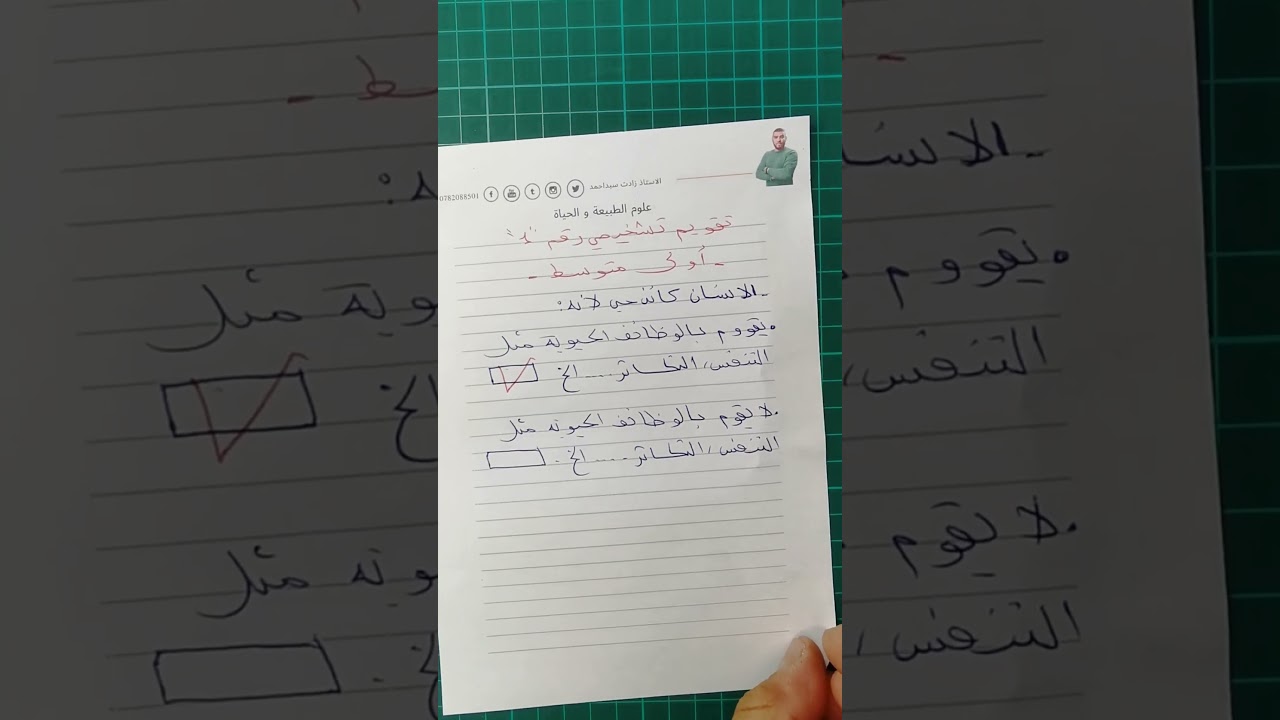 الاستاذ زادت سيداحمد
0782088501
علوم الطبيعة و الحياة
تقويم تشخيصي رقم "1"
- أولى متوسط -
- الانسان كائن حي لأنه:
• يقووم بالوظائف الحيوية مثل
التنفس، التكاثر.... الخ
• لا يقوم بالوظائف الحيويه مثل
التنفس، التكاثر.... الخ.